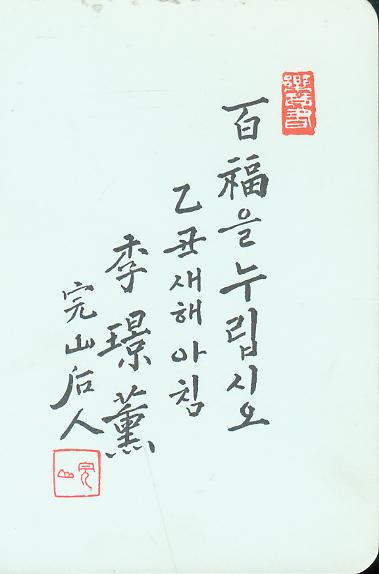 百福을누립시오
乙丑새해아침
李璟薰
完山后人
完山